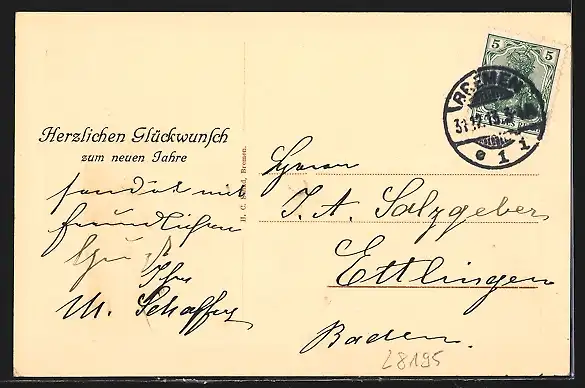 Herzlichen Glückwunsch
zum neuen Jahre
sendet mit
freundlichen
Gruß
Ihr
M. Schaffer
H. C. Bremen.
5 5
BREMEN
31.12.13.
e 1 1
Herrn
J. A. Salzgeber
Ettlingen
Baden.
L8195